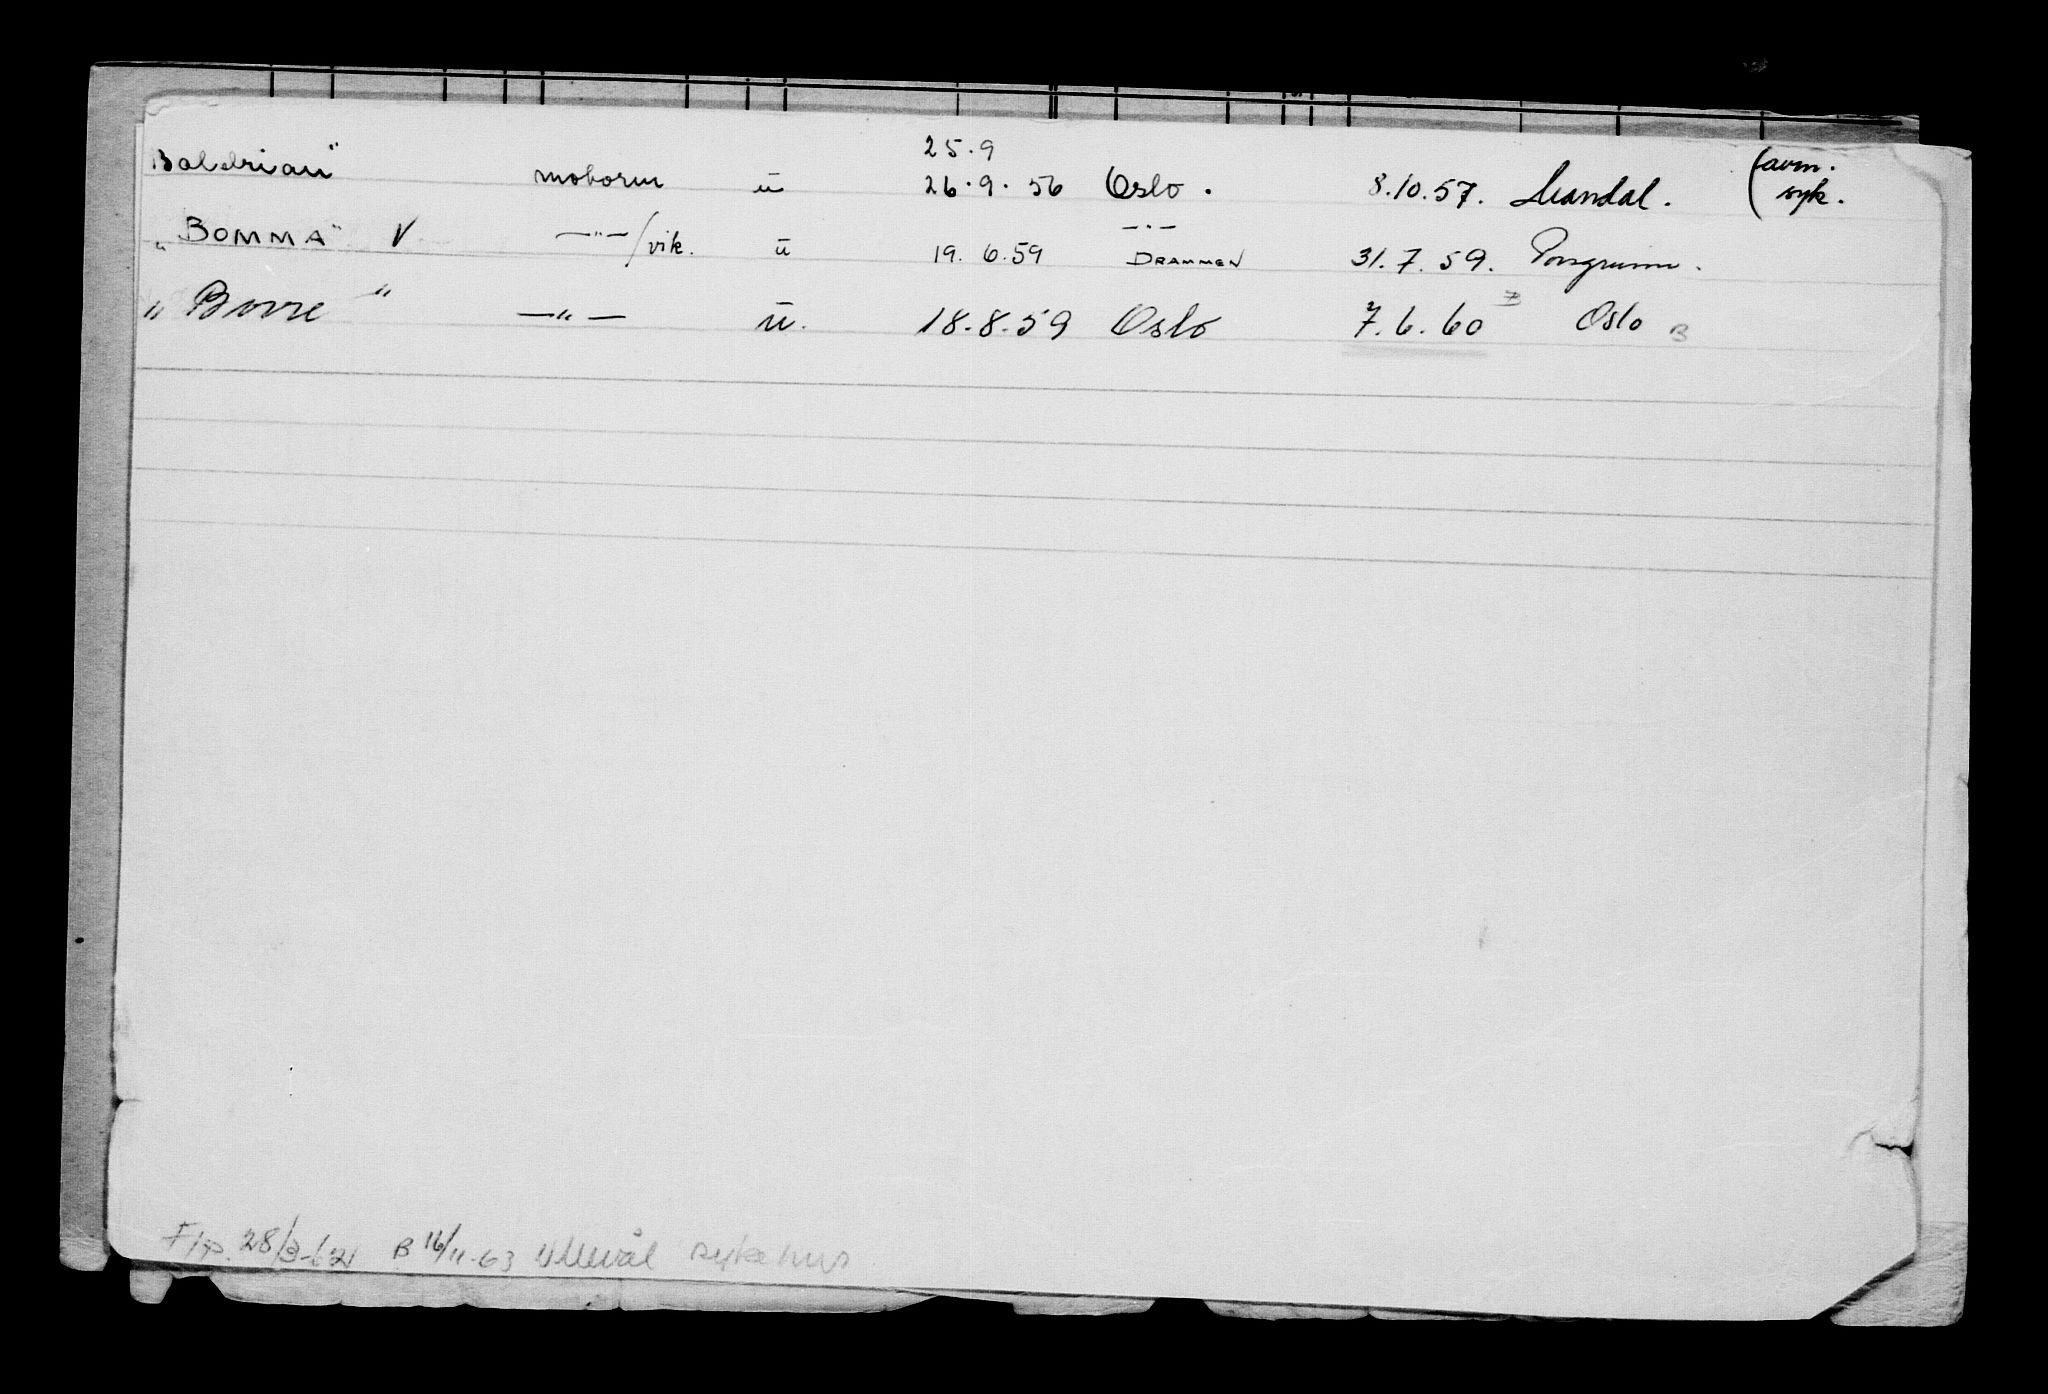 25.9
Baldrian" motorm ū 26.9.56 Oslo. 8.10.57. Mandal. (avm. syk.
"BOMMA" V —"—/vik. ū 19.6.59 —"— DRAMMEN 31.7.59. Porsgrunn.
"Borre" —"— ū. 18.8.59 Oslo 7.6.60 Oslo B
28/3- B 16/11-63 Ullevål sykehus